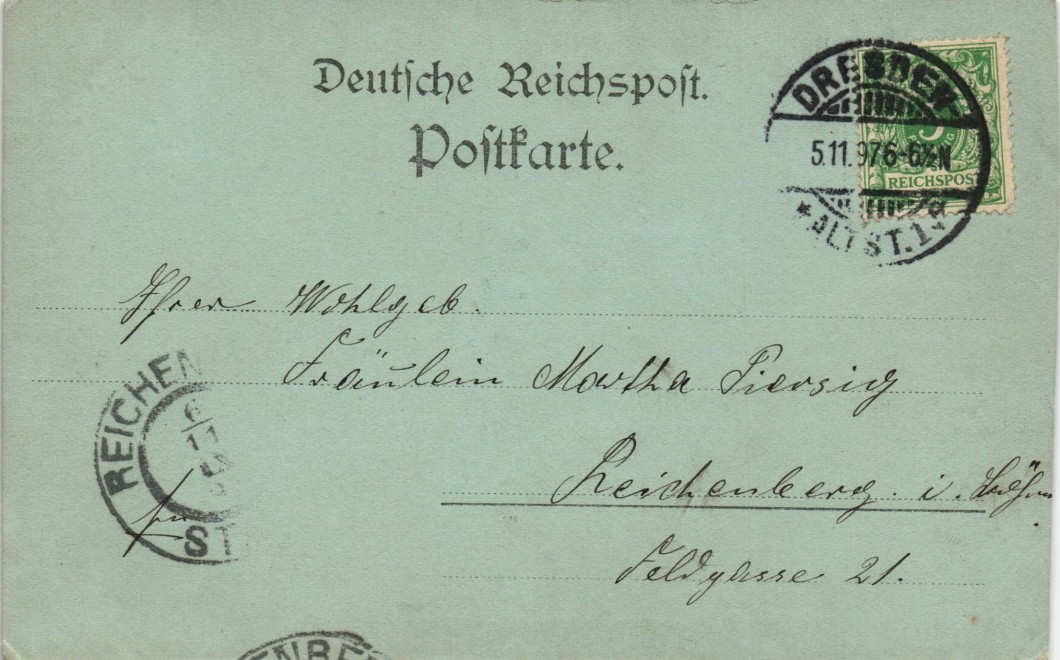 Deutsche Reichspost.
Postkarte.
DRESDEN-
5.11.97 6-6½N
*ALTST.1
5
REICHSPOST
Ihrer Wohlgeb.
Fräulein Martha Piersig
Reichenberg. i. Böhm
Feldgasse 21.
REICHEN
6
11
ST
ENBE